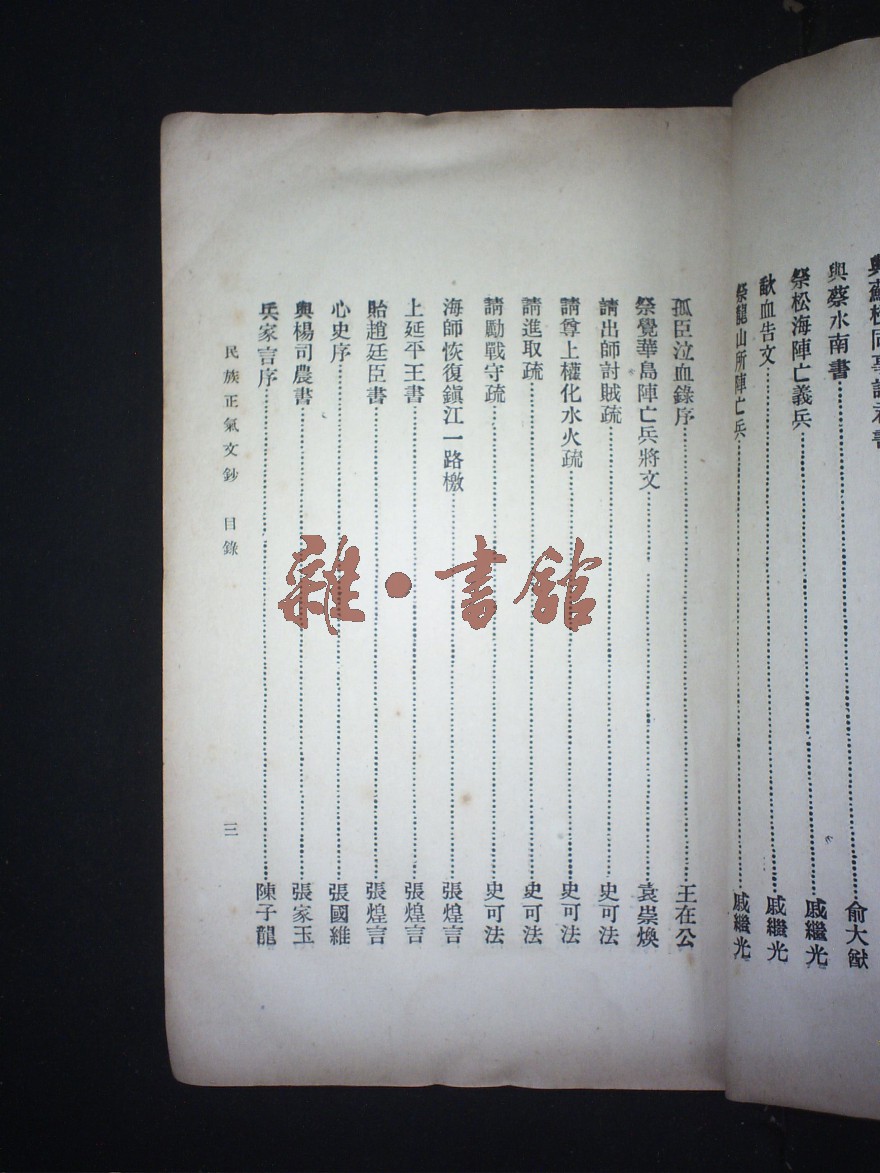 與蔡水南書 俞大猷
祭松海陣亡義兵 戚繼光
歃血告文 戚繼光
祭龍山所陣亡兵 戚繼光
孤臣泣血錄序 王在公
祭覺華島陣亡兵將文 袁崇煥
請出師討賊疏 史可法
請尊上權化水火疏 史可法
請進取疏 史可法
請勵戰守疏 史可法
海師恢復鎭江一路檄 張煌言
上延平王書 張煌言
貽趙廷臣書 張煌言
心史序 張國維
與楊司農書 張家玉
兵家言序 陳子龍
民族正氣文鈔 目錄
三
雜·書館